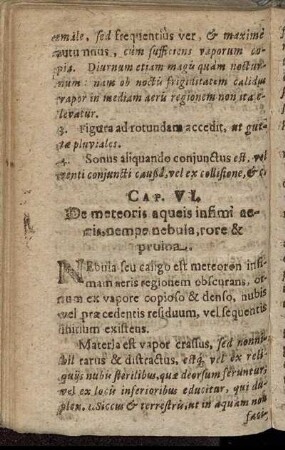 exmäle, sed frequentius ver, & maximè
autumnus, cùm sufficiens vaporum co-
pia. Diurnum etiam magis quàm noctur-
num: nam ob noctu frigiditatem calidus
vapor in mediam aeris regionem non ita e-
levatur.
3. Figura ad rotundam accedit, ut gut-
tæ pluviales.
4. Sonus aliquando conjunctus est, vel
venti conjuncti caussâ, vel ex collisione, & c.
CAP. VI.
De meteoris aqueis infimi ae-
ris, nempe nebula, rore &
pruina.
NEbula seu caligo est meteoron infi-
mam aeris regionem obscurans, or-
tum ex vapore copioso & denso, nubis
vel præcedentis residuum, vel sequentis
initium existens.
Materia est vapor crassus, sed nonni-
hil rarus & distractus, estq́; vel ex reli-
quijs nubis sterilibus, quæ deorsum feruntur,
vel ex locis inferioribus educitur, qui du-
plex. 1. Siccus & terrestris, ut in aquam non